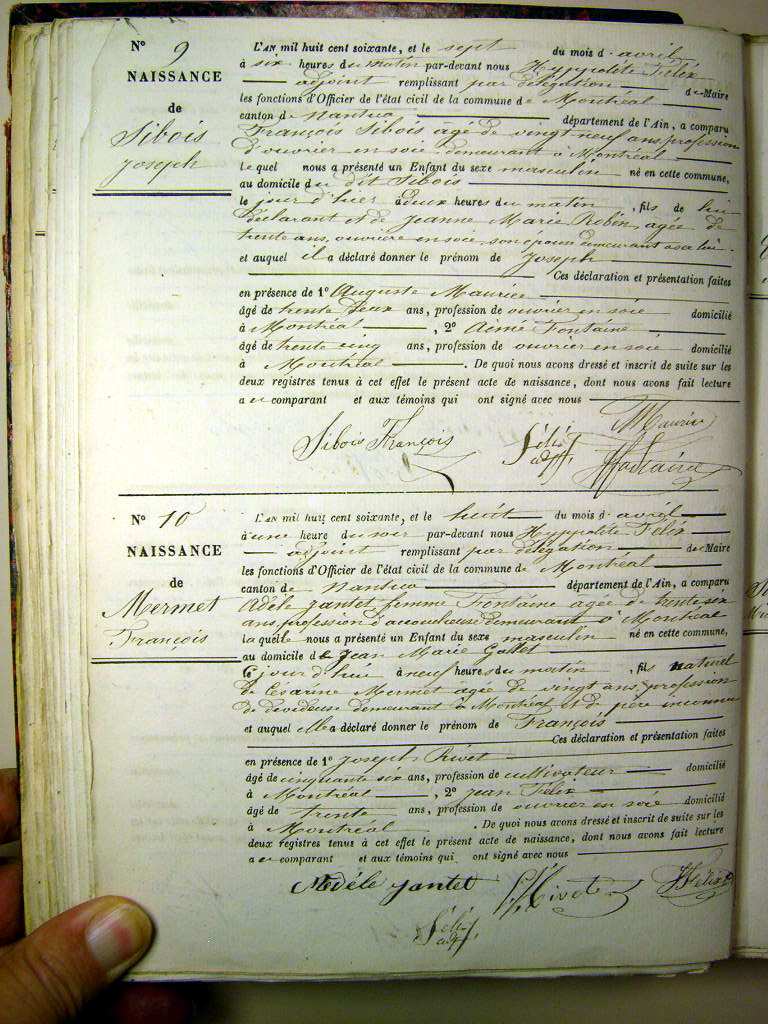 N° 9
NAISSANCE
de
Sibois
Joseph
L'AN mil huit cent soixante, et le sept du mois d avril
à six heures du matin par-devant nous Hyppolite Félix
adjoint remplissant par délégation de Maire
les fonctions d'Officier de l'état civil de la commune de Montréal
canton de Nantua département de l'Ain, a comparu
François Sibois âgé de vingt neuf ans, profession
d'ouvrier en soie demeurant à Montréal
le quel nous a présenté un Enfant du sexe masculin né en cette commune,
au domicile du dit Sibois
le jour d'hier à deux heures du matin, fils de lui
déclarant et de Jeanne Marie Robin, agée de
trente ans, ouvrière en soie, son épouse demeurant avec lui
et auquel il a déclaré donner le prénom de Joseph
Ces déclaration et présentation faites
en présence de 1° Auguste Maurice
âgé de trente deux ans, profession de ouvrier en soie domicilié
à Montréal, 2° Aimé Fontaine
âgé de trente cinq ans, profession de ouvrier en soie domicilié
à Montréal. De quoi nous avons dressé et inscrit de suite sur les
deux registres tenus à cet effet le présent acte de naissance, dont nous avons fait lecture
a u comparant et aux témoins qui ont signé avec nous
Maurice
Sibois François Félix adj. Fontaine
N° 10
NAISSANCE
de
Mermet
François
L'AN mil huit cent soixante, et le huit du mois d avril
à une heure du soir par-devant nous Hyppolite Félix
adjoint remplissant par délégation de Maire
les fonctions d'Officier de l'état civil de la commune de Montréal
canton de Nantua département de l'Ain, a comparu
Adèle Jantet, femme Fontaine agée de trente six
ans, profession d'accoucheuse demeurant à Montréal
la quelle nous a présenté un Enfant du sexe masculin né en cette commune,
au domicile de Jean Marie Gottet
le jour d'hui à neuf heures du matin, fils naturel
de Césarine Mermet âgée de vingt ans, profession
de devideuse demeurant à Montréal et de père inconnu
et auquel elle a déclaré donner le prénom de François
Ces déclaration et présentation faites
en présence de 1° Joseph Rivet
âgé de cinquante six ans, profession de cultivateur domicilié
à Montréal, 2° Jean Félix
âgé de trente ans, profession de ouvrier en soie domicilié
à Montréal. De quoi nous avons dressé et inscrit de suite sur les
deux registres tenus à cet effet le présent acte de naissance, dont nous avons fait lecture
a u comparant et aux témoins qui ont signé avec nous
Adèle Jantet Rivet Félix
Félix adj.